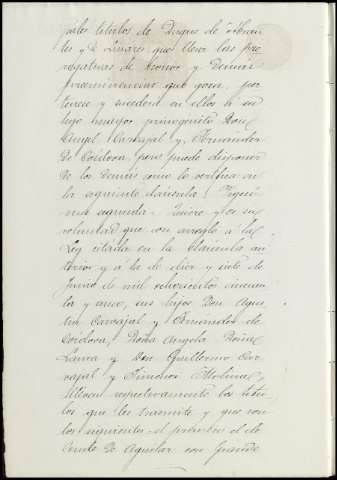 jados titulos de Duque de Abran-
tes y de Linares que lleva los pre
rogativas de honor y demás
preeminencias que gozan, per
tenece y sucederá en ellos á su
hijo mayor primogenito Don
Angel Carvajal y Fernandez
de Córdova, pero puede disponer
de los demás como lo verifica en
la siguiente clausula. Vigesi
ma segunda. Quiere y es su
voluntad que con arreglo á la
Ley citada en la clausula an
terior y á la de diez y siete de
Junio de mil ochocientos cincuen
ta y cinco, sus hijos Don Agus
tin Carvajal y Fernandez de
Córdova, Doña Angela Maria
Luisa y Don Guillermo Car
vajal y Jimenez Molina,
lleven respectivamente los titu
los que les transmite y que son
los siguientes: el primero el de
Conde de Aguilar con Grande